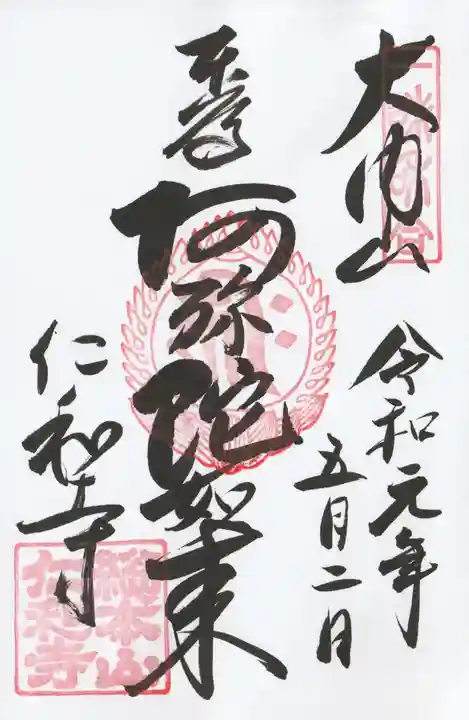 大内山
令和元年
五月二日
奉拝
阿弥陀如来
仁和寺
総本山
仁和寺